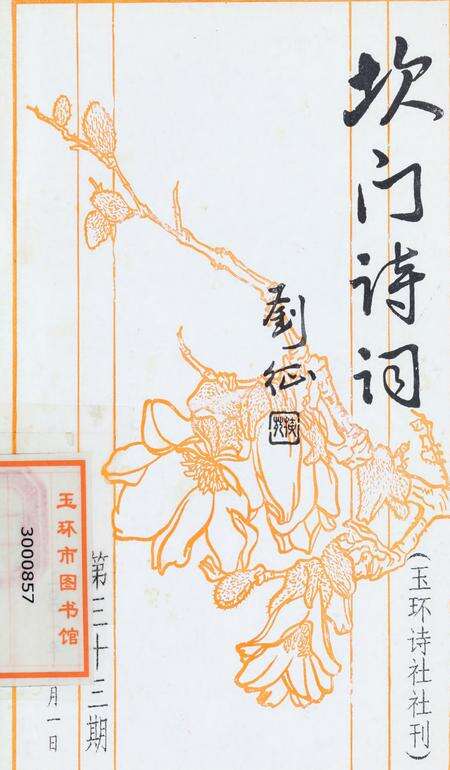 坎门诗词
(玉环诗社社刊)
劉征
第三十三期
月一日
玉环市图书馆
3000857